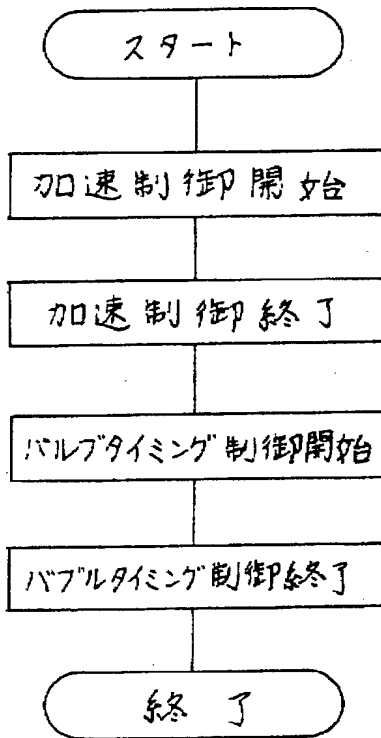 スタート
加速制御開始
加速制御終了
バルブタイミング制御開始
バブルタイミング制御終了
終了